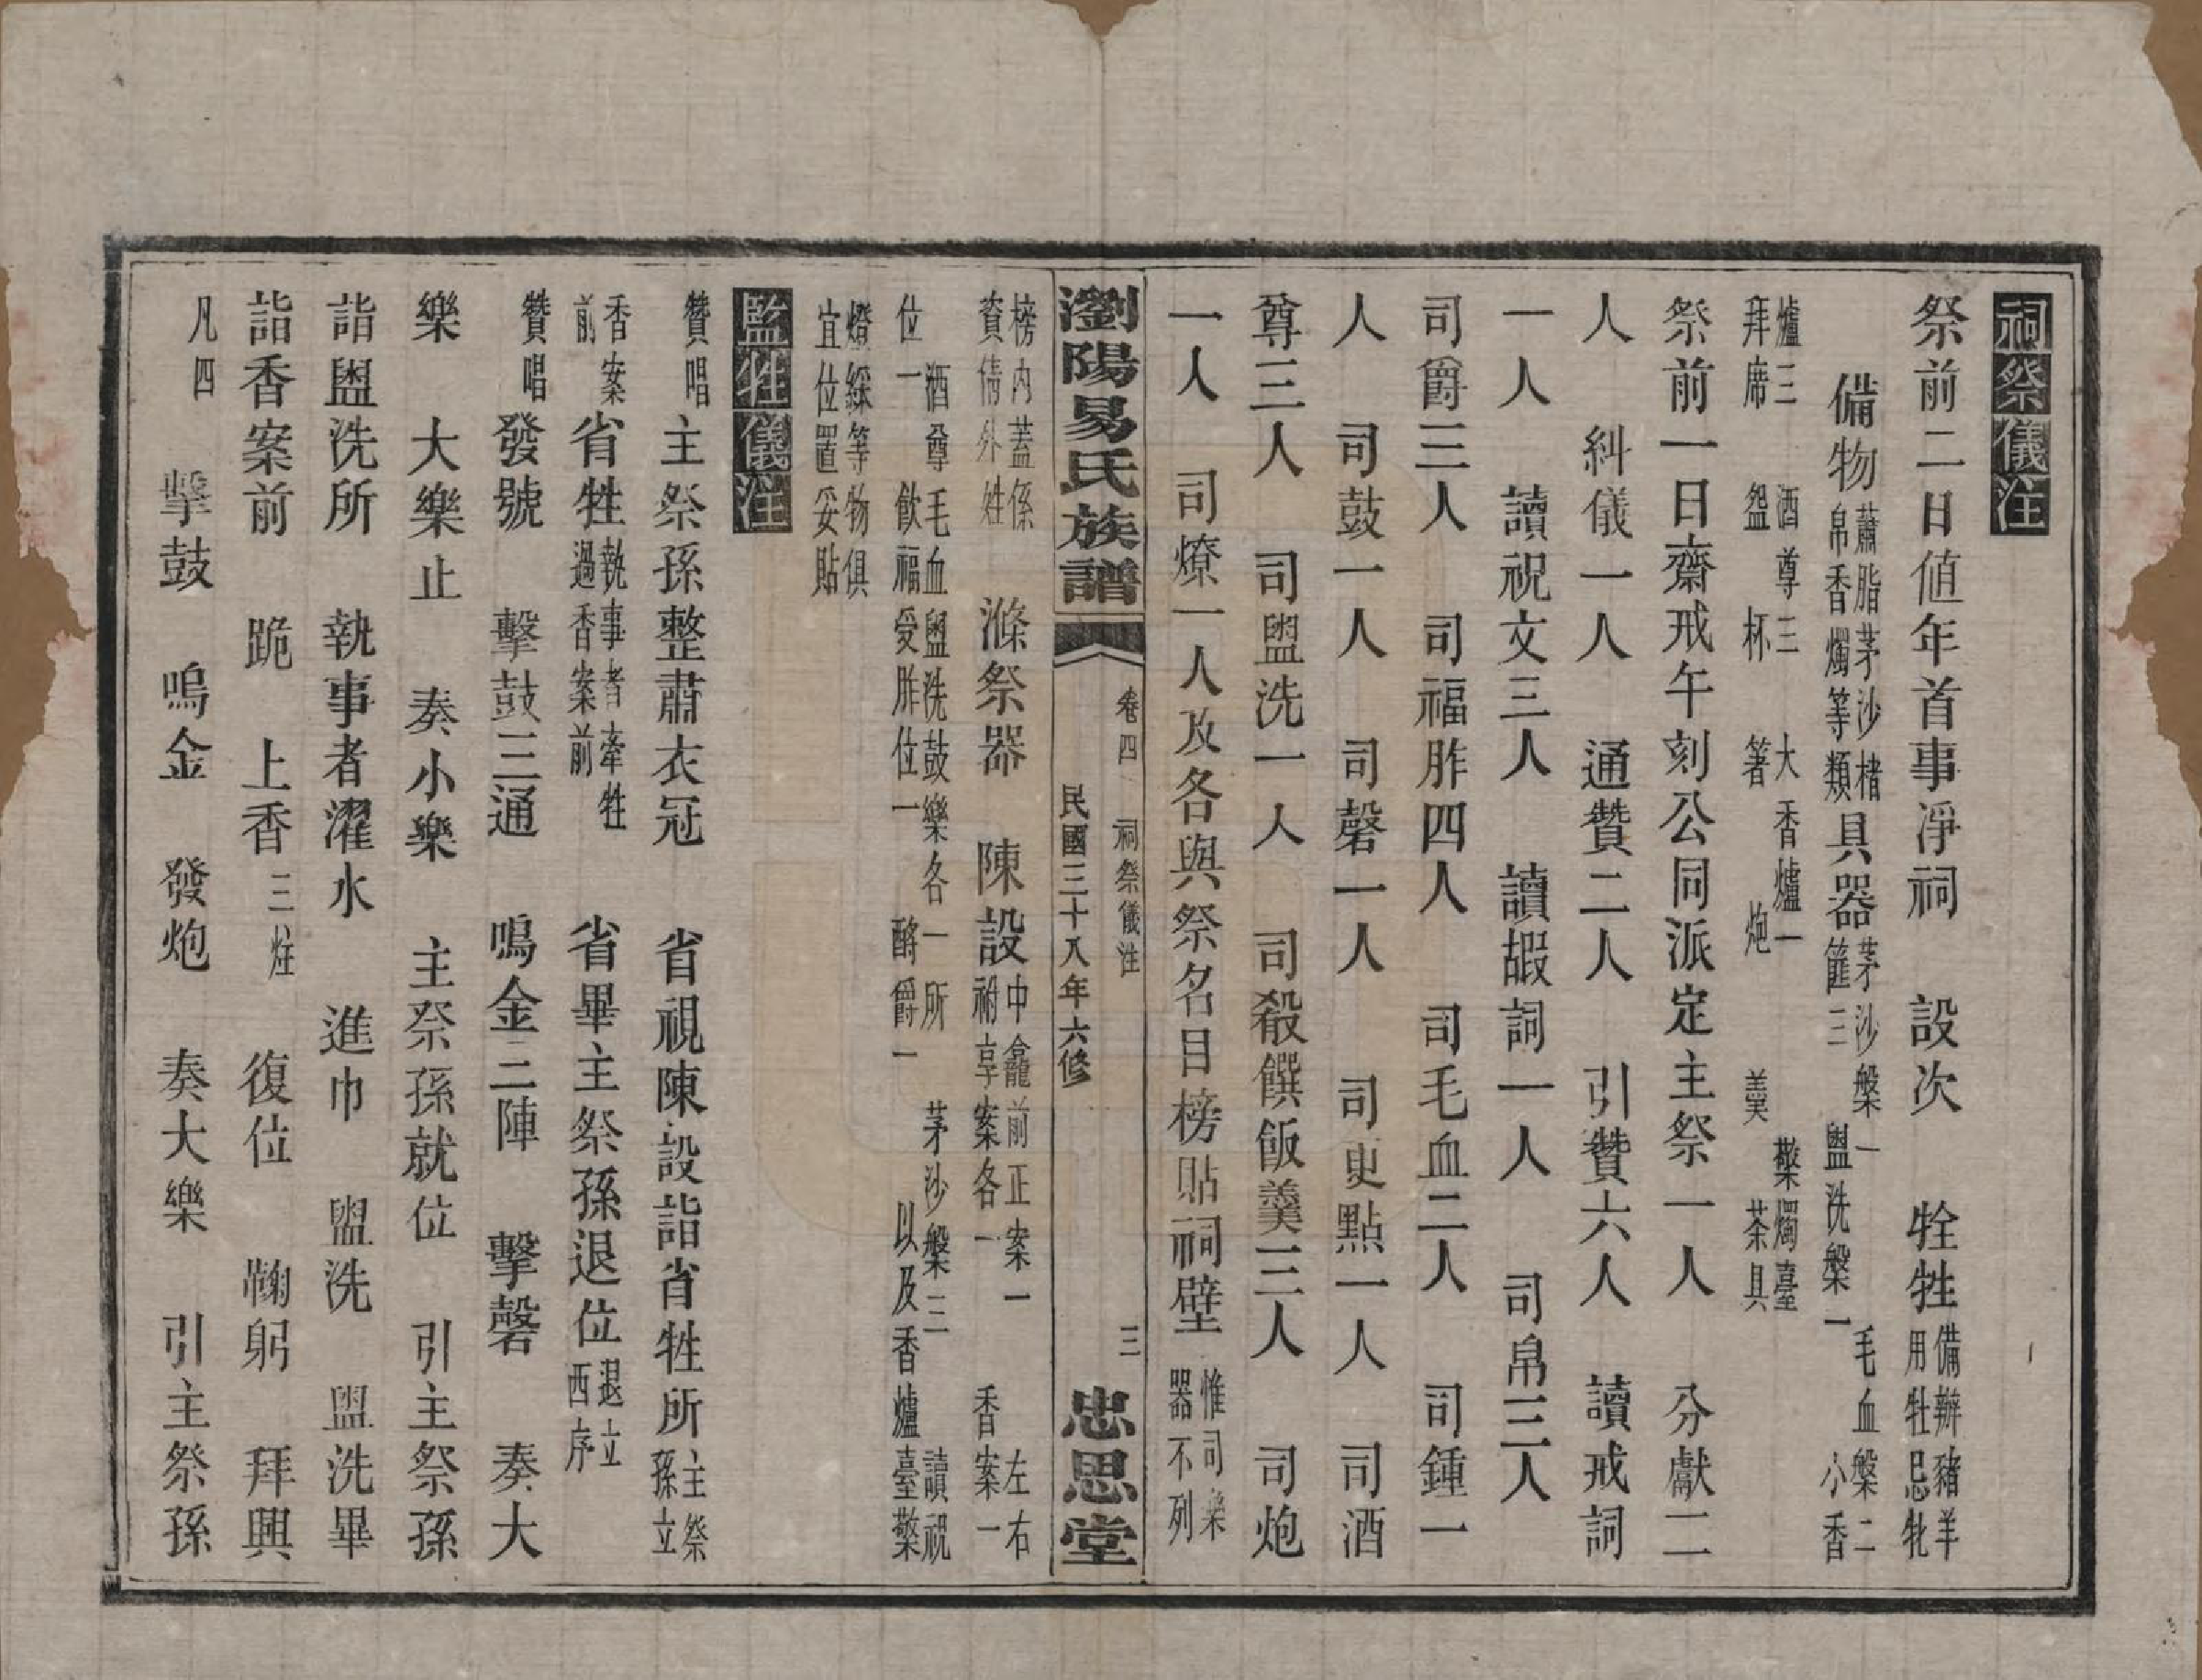 祠祭儀注
祭前二日値年首事凈祠　設次　牷牲備辦豬羊用牡忌牝
備物蕭脂茅沙楮帛香燭等類具器茅沙槃一篚三　盥洗槃一　毛血槃二　小香
爐三　酒尊三　大香爐一　檠燭臺拜席　盌　杯　箸　炮　羹　茶具
祭前一日齋戒午刻公同派定主祭一人　分獻二
人　糾儀一人　通贊二人　引贊六人　讀戒詞
一人　讀祝文三人　讀嘏詞一人　司帛三人
司爵三人　司福胙四人　司毛血二人　司鍾一
人　司鼓一人　司磬一人　司更點一人　司酒
尊三人　司盥洗一人　司殽饌飯羹三人　司炮
一人　司燎一人及各與祭名目榜貼祠壁惟司樂器不列
瀏陽易氏族譜　卷四　祠祭儀注　三　民國三十八年六修　忠思堂
榜內蓋係資倩外姓　滌祭器　陳設中龕前正案一　左右祔享案各一　香案一
位一　酒尊毛血盥洗鼓樂各一所　茅沙槃三　讀祝飲福受胙位一　酹爵一　以及香爐臺檠
燈綵等物俱宜位置妥貼
監牲儀注
贊唱　主祭孫整肅衣冠　省視陳設詣省牲所主祭孫立
香案前　省牲執事者牽牲過香案前　省畢主祭孫退位退立西序
贊唱　發號　擊鼓三通　鳴金二陣　擊磬　奏大
樂　大樂止　奏小樂　主祭孫就位　引主祭孫
詣盥洗所　執事者濯水　進巾　盥洗　盥洗畢
詣香案前　跪　上香三炷　復位　鞠躬　拜興
凡四　擊鼓　鳴金　發炮　奏大樂　引主祭孫